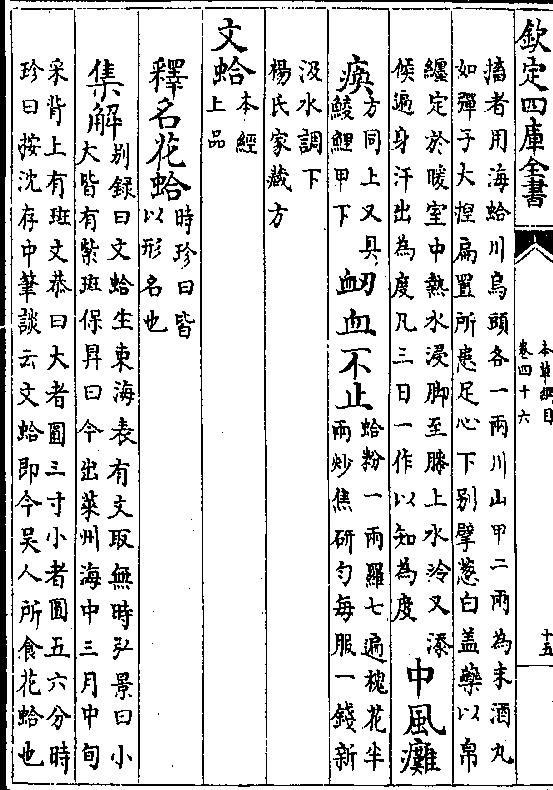 欽定四庫全書
本草綱目
卷四十六
十五
搐者用海蛤川烏頭各一兩川山甲二兩為末酒丸
如彈子大捏扁置所患足心下别擘葱白盖藥以帛
纒定於暖室中熱水浸脚至膝上水冷又添
候遍身汗出為度凡三日一作以知為度
中風癱
瘓
方同上又具
鯪鯉甲下
衂血不止
蛤粉一兩羅七遍槐花半
兩炒焦研匀每服一錢新
汲水調下
楊氏家藏方
文蛤
本經
上品
釋名花蛤
時珍曰皆
以形名也
集解
别録曰文蛤生東海表有文取無時弘景曰小
大皆有紫斑保昇曰今出萊州海中三月中旬
采背上有斑文恭曰大者圓三寸小者圓五六分時
珍曰按沈存中筆談云文蛤即今吳人所食花蛤也